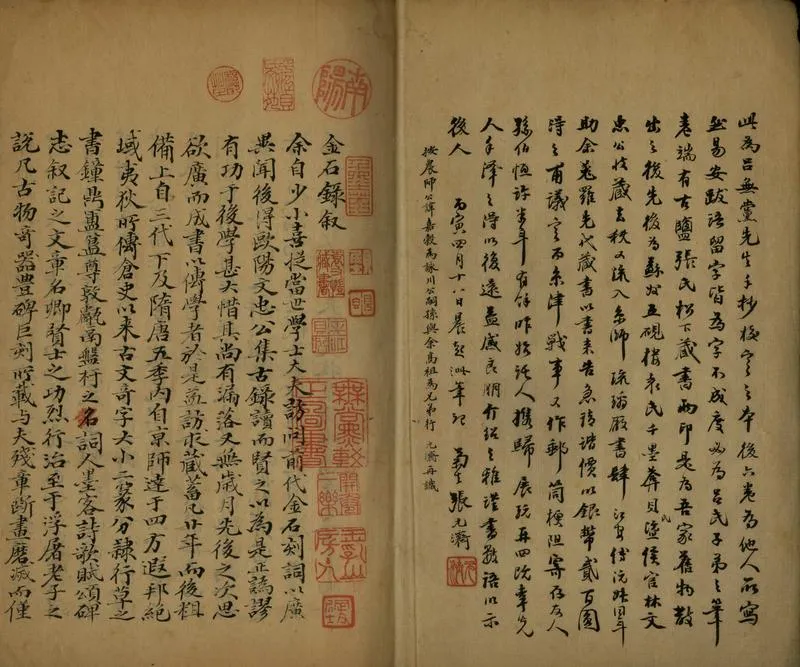 此為呂無黨先生手抄校字之本後六卷為他人所寫
然易安跋語留字皆為字不成度必為呂氏子弟之筆
卷端有古鹽張氏松下藏書兩印是為吾家舊物散
出之後先後為蘇州五硯樓袁氏千墨弇貝氏侯官林文
忠公收藏去秩又流入京師琉璃廠書肆沅叔同年
助余蒐羅先代藏書以書來告急請諧價以銀幣貳百圓
得之甫議定而京津戰事又作郵筒梗阻寄存友人
孫伯恒許半年有餘昨始託人攜歸展玩再四既幸先
人手澤之得以復還益感良朋介紹之雅謹書數語以示
後人 丙寅四月十八日晨起泚筆記 菊生張元濟
按公諱嘉穀為詠川公嗣孫與余高祖為兄弟行 元濟再識
南陽
金石錄叙
余自少小喜從當世學士大夫訪問前代金石刻詞以廣
異聞後得歐陽文忠公集古錄讀而賢之以為是正譌謬
有功于後學甚大惜其尚有漏落又無歲月先後之次思
欲廣而成書以傳學者於是益訪求藏蓄凡廿年而後粗
備上自三代下及隋唐五季內自京師達于四方遐邦絕
域夷狄所傳倉史以來古文奇字大小二篆分隸行草之
書鐘鼎簠簋尊敦甗鬲盤杅之名詞人墨客詩歌賦頌碑
志叙記之文章名卿賢士之功烈行治至于浮屠老子之
說凡古物奇器豐碑巨刻所載與夫殘章斷畫磨滅而僅